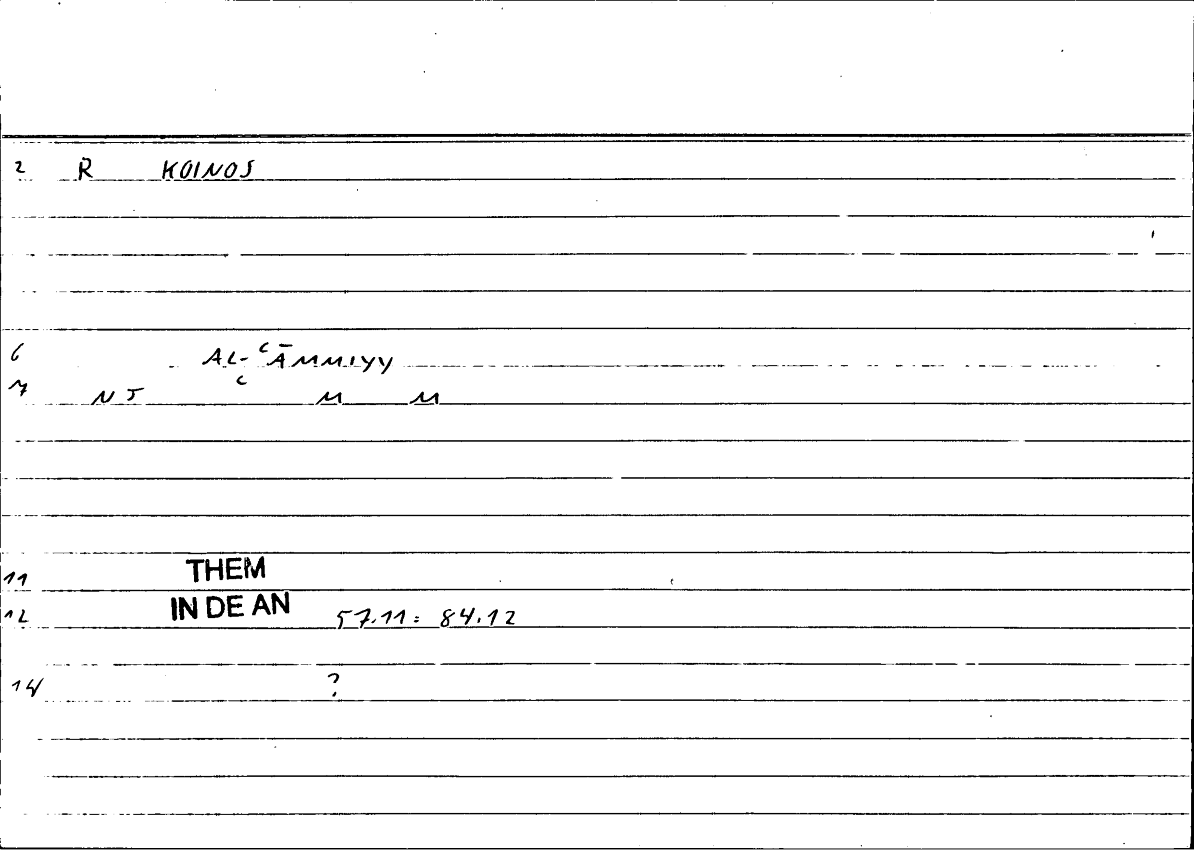 2 R KOINOS
6 AL-ʿĀMMIYY
7 NJ ʿ M M
11 THEM
12 IN DE AN 57.11: 84.12
14 ?